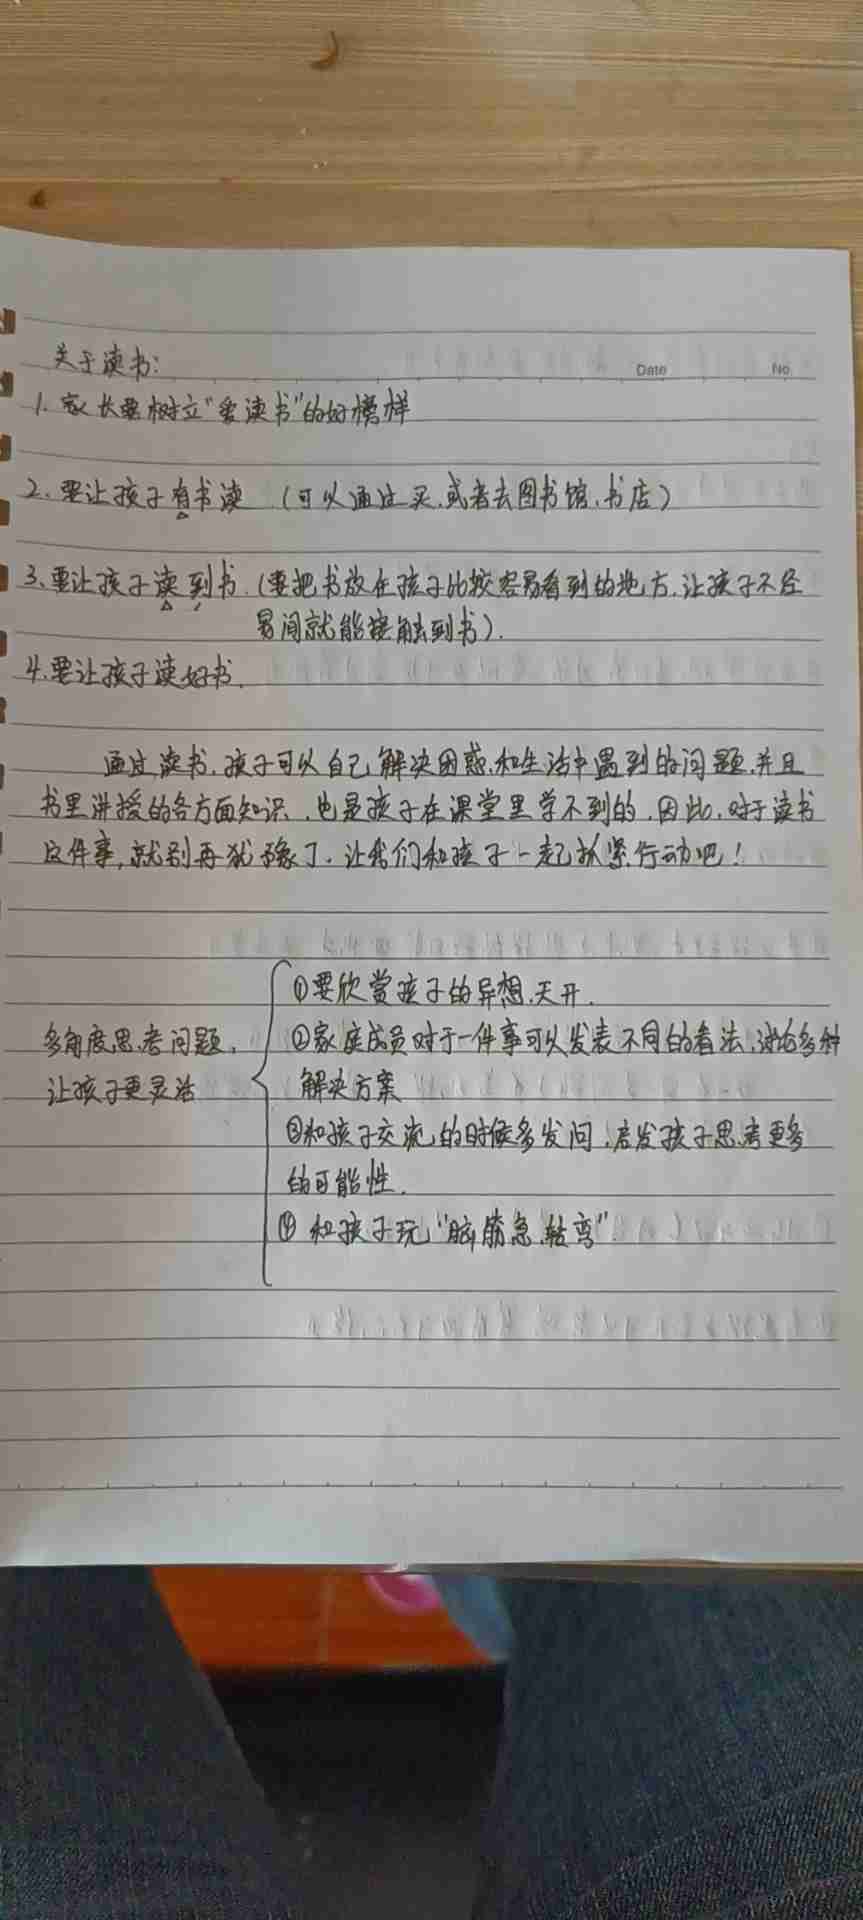 关于读书:
Date No
1. 家长要树立"爱读书"的好榜样
2. 要让孩子有书读 (可以通过买.或者去图书馆.书店)
3.要让孩子读到书.(要把书放在孩子比较容易看到的地方.让孩子不经
易间就能接触到书).
4.要让孩子读好书.
通过读书.孩子可以自己解决困惑.和生活中遇到的问题.并且
书里讲授的各方面知识.也是孩子在课堂里学不到的.因此.对于读书
这件事,就别再犹豫了.让我们和孩子一起抓紧行动吧!
多角度思考问题,
让孩子更灵活
①要欣赏孩子的异想天开.
②家庭成员对于一件事可以发表不同的看法,讨论多种
解决方案
③和孩子交流的时候多发问.启发孩子思考更多
的可能性.
④ 和孩子玩"脑筋急转弯"